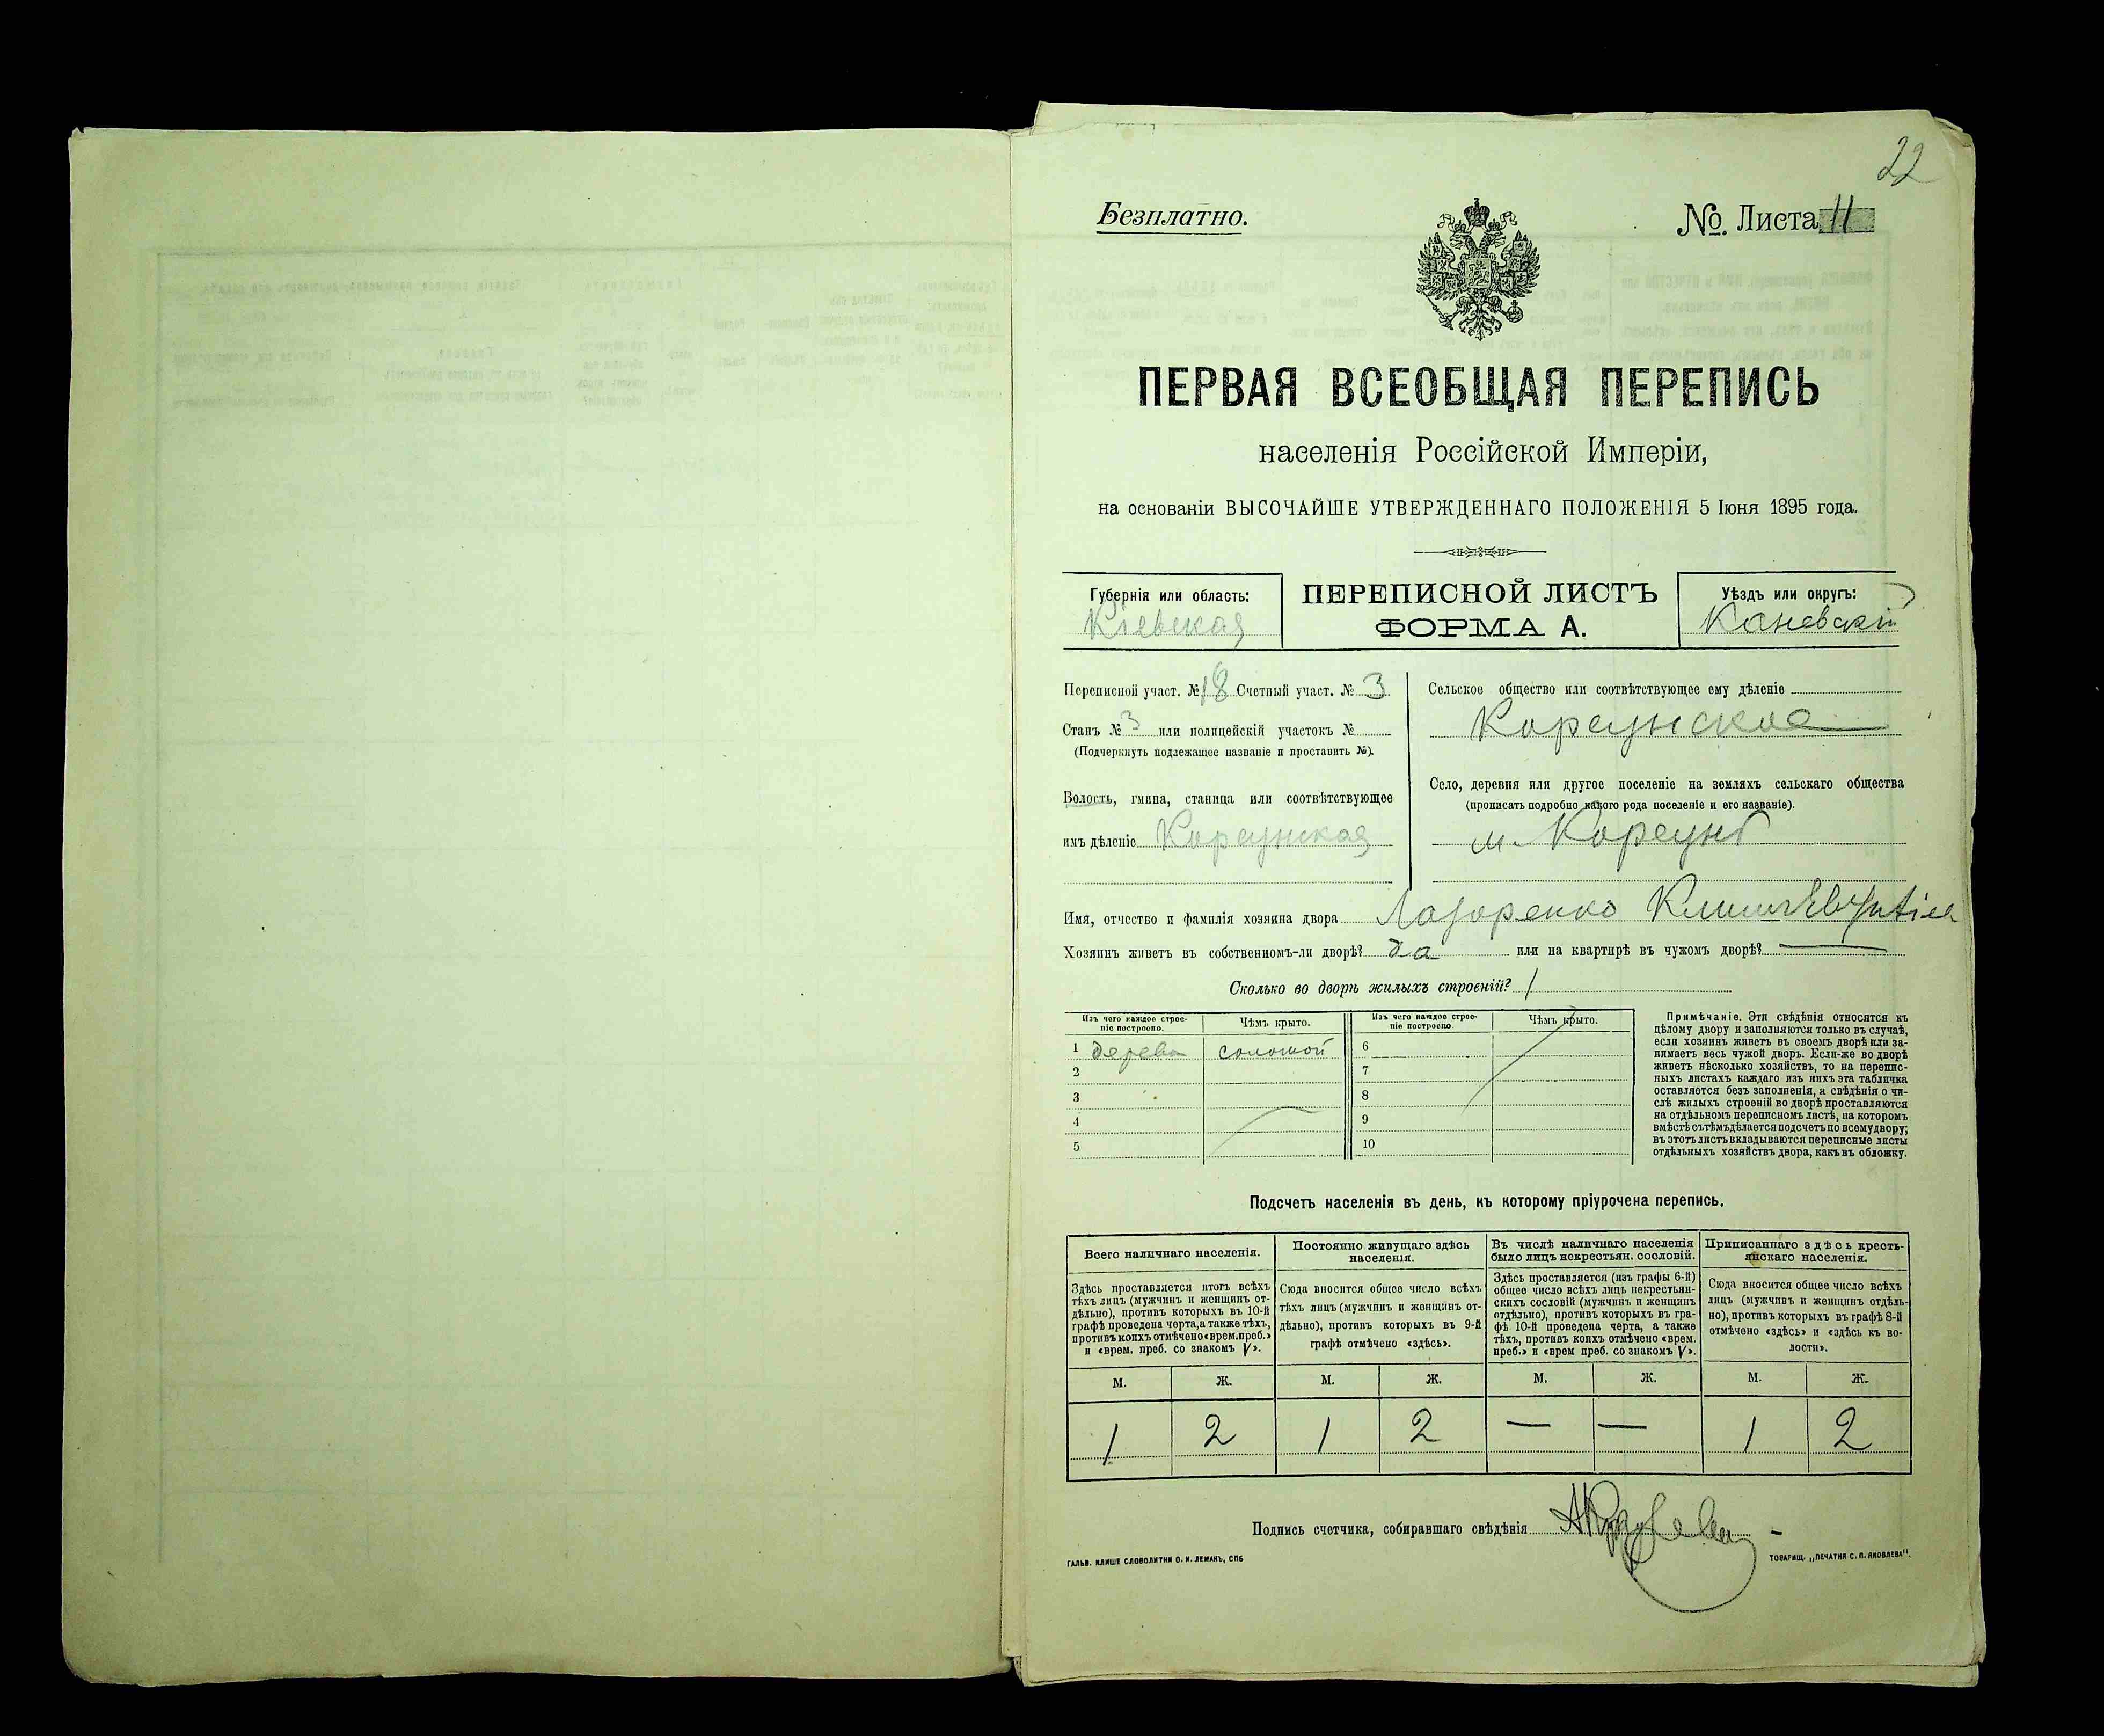 22
Безплатно.
№. Листа 11
ПЕРВАЯ ВСЕОБЩАЯ ПЕРЕПИСЬ
населенія Россійской Имперіи,
на основаніи ВЫСОЧАЙШЕ УТВЕРЖДЕННАГО ПОЛОЖЕНІЯ 5 Іюня 1895 года.
Губернія или область:
Кіевская
ПЕРЕПИСНОЙ ЛИСТЪ
ФОРМА А.
Уѣздъ или округъ:
Каневскій
Переписной участ. № 18 Счетный участ. № 3
Станъ № 3 или полицейскій участокъ №
(Подчеркнуть подлежащее названіе и проставить №).
Волость, гмина, станица или соотвѣтствующее
имъ дѣленіе Корсунская
Сельское общество или соотвѣтствующее ему дѣленіе
Корсунское
Село, деревня или другое поселеніе на земляхъ сельскаго общества
(прописать подробно какого рода поселеніе и его названіе).
м. Корсунь
Имя, отчество и фамилія хозяина двора Лазоренко Климъ
Хозяинъ живетъ въ собственномъ-ли дворѣ? да или на квартирѣ въ чужомъ дворѣ? —
Сколько во дворѣ жилыхъ строеній? 1
Изъ чего каждое строе-
ніе построено.
Чѣмъ крыто.
1 дерева соломой
2
3
4
5
Изъ чего каждое строе-
ніе построено.
Чѣмъ крыто.
6
7
8
9
10
Примѣчаніе. Эти свѣдѣнія относятся къ
цѣлому двору и заполняются только въ случаѣ,
если хозяинъ живетъ въ своемъ дворѣ или за-
нимаетъ весь чужой дворъ. Если-же во дворѣ
живетъ нѣсколько хозяйствъ, то на перепис-
ныхъ листахъ каждаго изъ нихъ эта табличка
оставляется безъ заполненія, а свѣдѣнія о чи-
слѣ жилыхъ строеній во дворѣ проставляются
на отдѣльномъ переписномъ листѣ, на которомъ
вмѣстѣ съ тѣмъ дѣлается подсчетъ по всему двору;
въ этотъ листъ вкладываются переписные листы
отдѣльныхъ хозяйствъ двора, какъ въ обложку.
Подсчетъ населенія въ день, къ которому пріурочена перепись.
Всего наличнаго населенія.
Здѣсь проставляется итогъ всѣхъ
тѣхъ лицъ (мужчинъ и женщинъ от-
дѣльно), противъ которыхъ въ 10-й
графѣ проведена черта, а также тѣхъ,
противъ коихъ отмѣчено «врем. преб.»
и «врем. преб. со знакомъ V».
Постоянно живущаго здѣсь
населенія.
Сюда вносится общее число всѣхъ
тѣхъ лицъ (мужчинъ и женщинъ от-
дѣльно), противъ которыхъ въ 9-й
графѣ отмѣчено «здѣсь».
Въ числѣ наличнаго населенія
было лицъ некрестьян. сословій.
Здѣсь проставляется (изъ графы 6-й)
общее число всѣхъ лицъ некрестьян-
скихъ сословій (мужчинъ и женщинъ
отдѣльно), противъ которыхъ въ гра-
фѣ 10-й проведена черта, а также
тѣхъ, противъ коихъ отмѣчено «врем.
преб.» и «врем преб. со знакомъ V».
Приписаннаго здѣсь кресть-
янскаго населенія.
Сюда вносится общее число всѣхъ
лицъ (мужчинъ и женщинъ отдѣль-
но), противъ которыхъ въ графѣ 8-й
отмѣчено «здѣсь» и «здѣсь къ во-
лости».
М. Ж. М. Ж. М. Ж. М. Ж.
1 2 1 2 — — 1 2
Подпись счетчика, собиравшаго свѣдѣнія
ГАЛЬВ. КЛИШЕ СЛОВОЛИТНИ О. И. ЛЕМАНЪ, СПБ
ТОВАРИЩ. „ПЕЧАТНЯ С. П. ЯКОВЛЕВА".